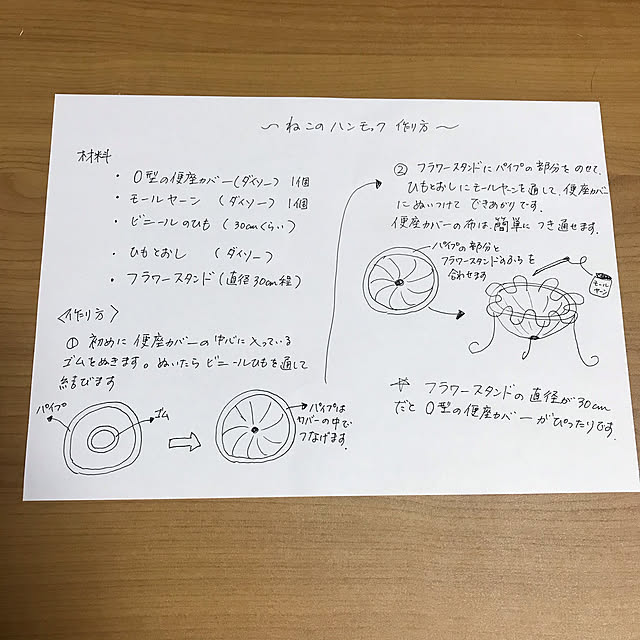 ～ ねこのハンモック 作り方 ～
材料
・ O型の便座カバー(ダイソー) 1個
・ モールヤーン (ダイソー) 1個
・ ビニールのひも (30cmくらい)
・ ひもとおし (ダイソー)
・ フラワースタンド(直径30cm経)
〈作り方〉
① 初めに 便座カバーの中心に入っている
ゴムをぬきます。ぬいたらビニールひもを通して
結びます
パイプ
ゴム
パイプは
カバーの中で
つなげます.
② フラワースタンドにパイプの部分をのせて、
ひもとおしにモールヤーンを通して、便座カバー
にぬいつけて できあがりです.
便座カバーの布は、簡単に つき通せます.
パイプの部分と
フラワースタンドのふちを
合わせます
モール
ヤーン
☆ フラワースタンドの直径が30cm
だと O型の便座カバーがぴったりです.